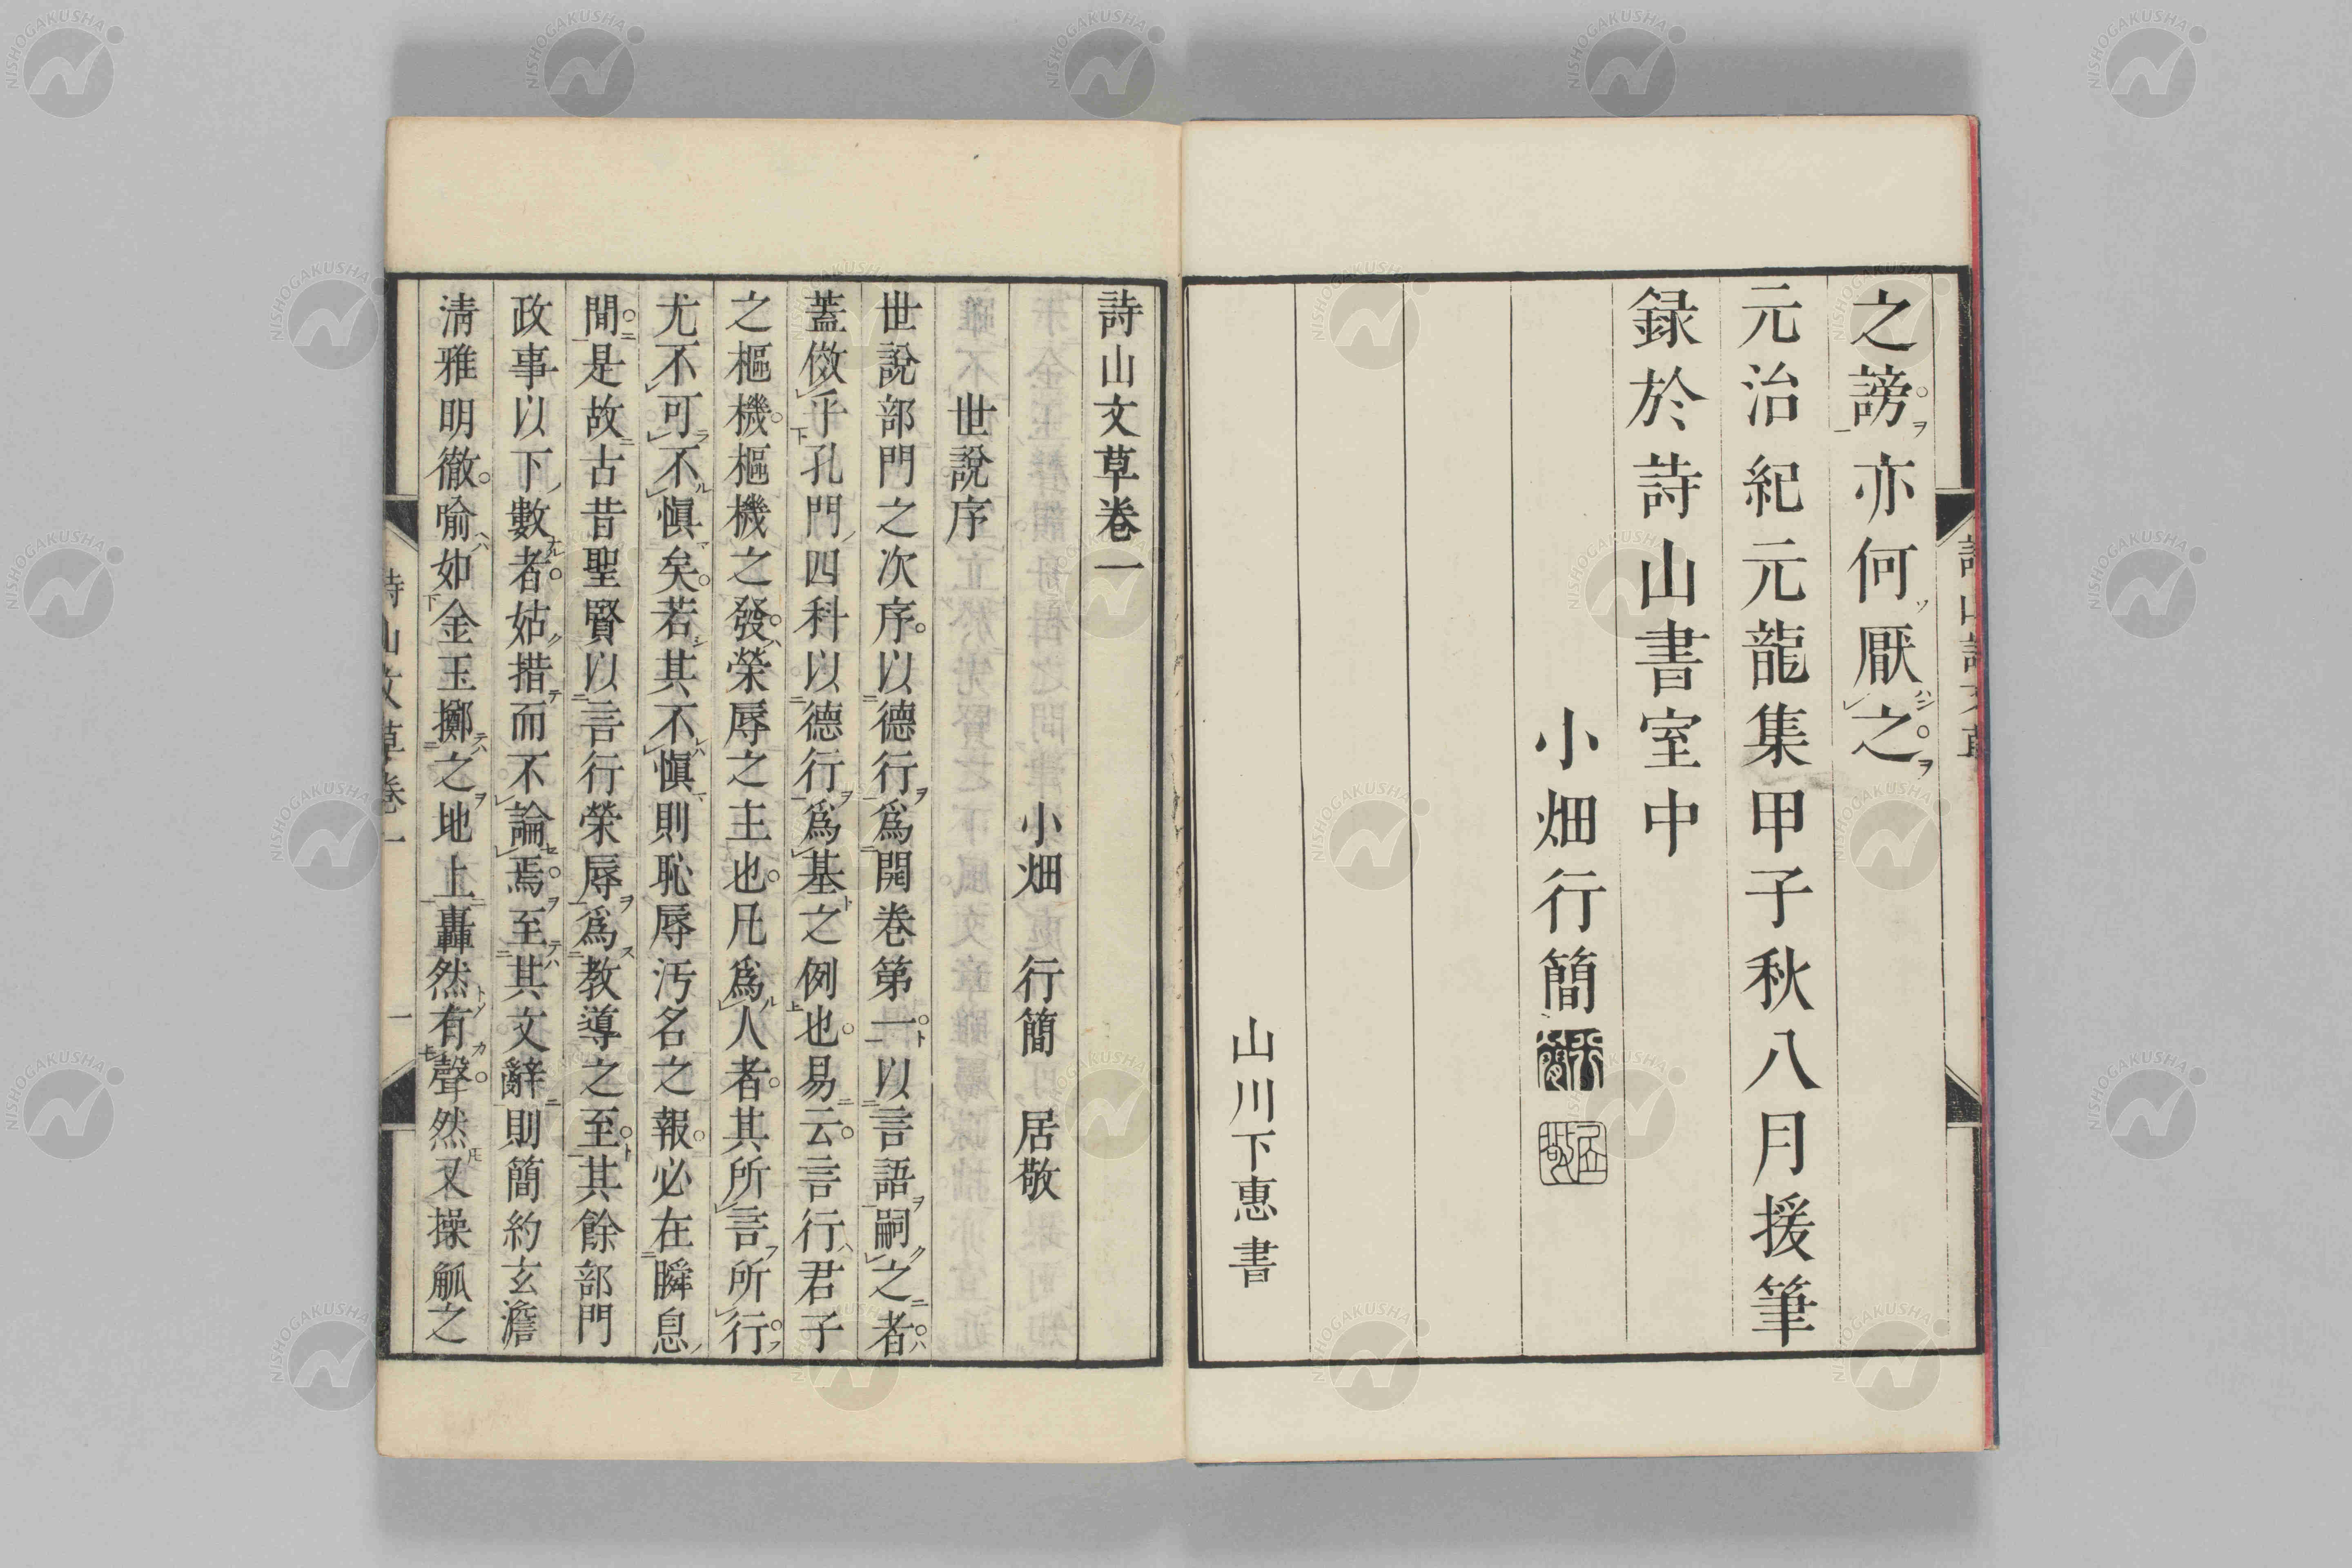 之謗亦何厭之
元治紀元龍集甲子秋八月援筆
録於詩山書室中
小畑行簡
山川下惠書
詩山文草卷一
小畑 行簡 居敬
世說序
世說部門之次序以德行爲開卷第一以言語嗣之者
蓋傚乎孔門四科以德行爲基之例也易云言行君子
之樞機樞機之發榮辱之主也凡爲人者其所言所行
尤不可不愼矣若其不愼則恥辱汚名之報必在瞬息
間是故古昔聖賢以言行榮辱爲教導之至其餘部門
政事以下數者姑措而不論焉至其文辭則簡約玄澹
淸雅明徹喻如金玉擲之地上轟然有聲然又操觚之
詩山文草卷一
一
NISHOGAKUSHA